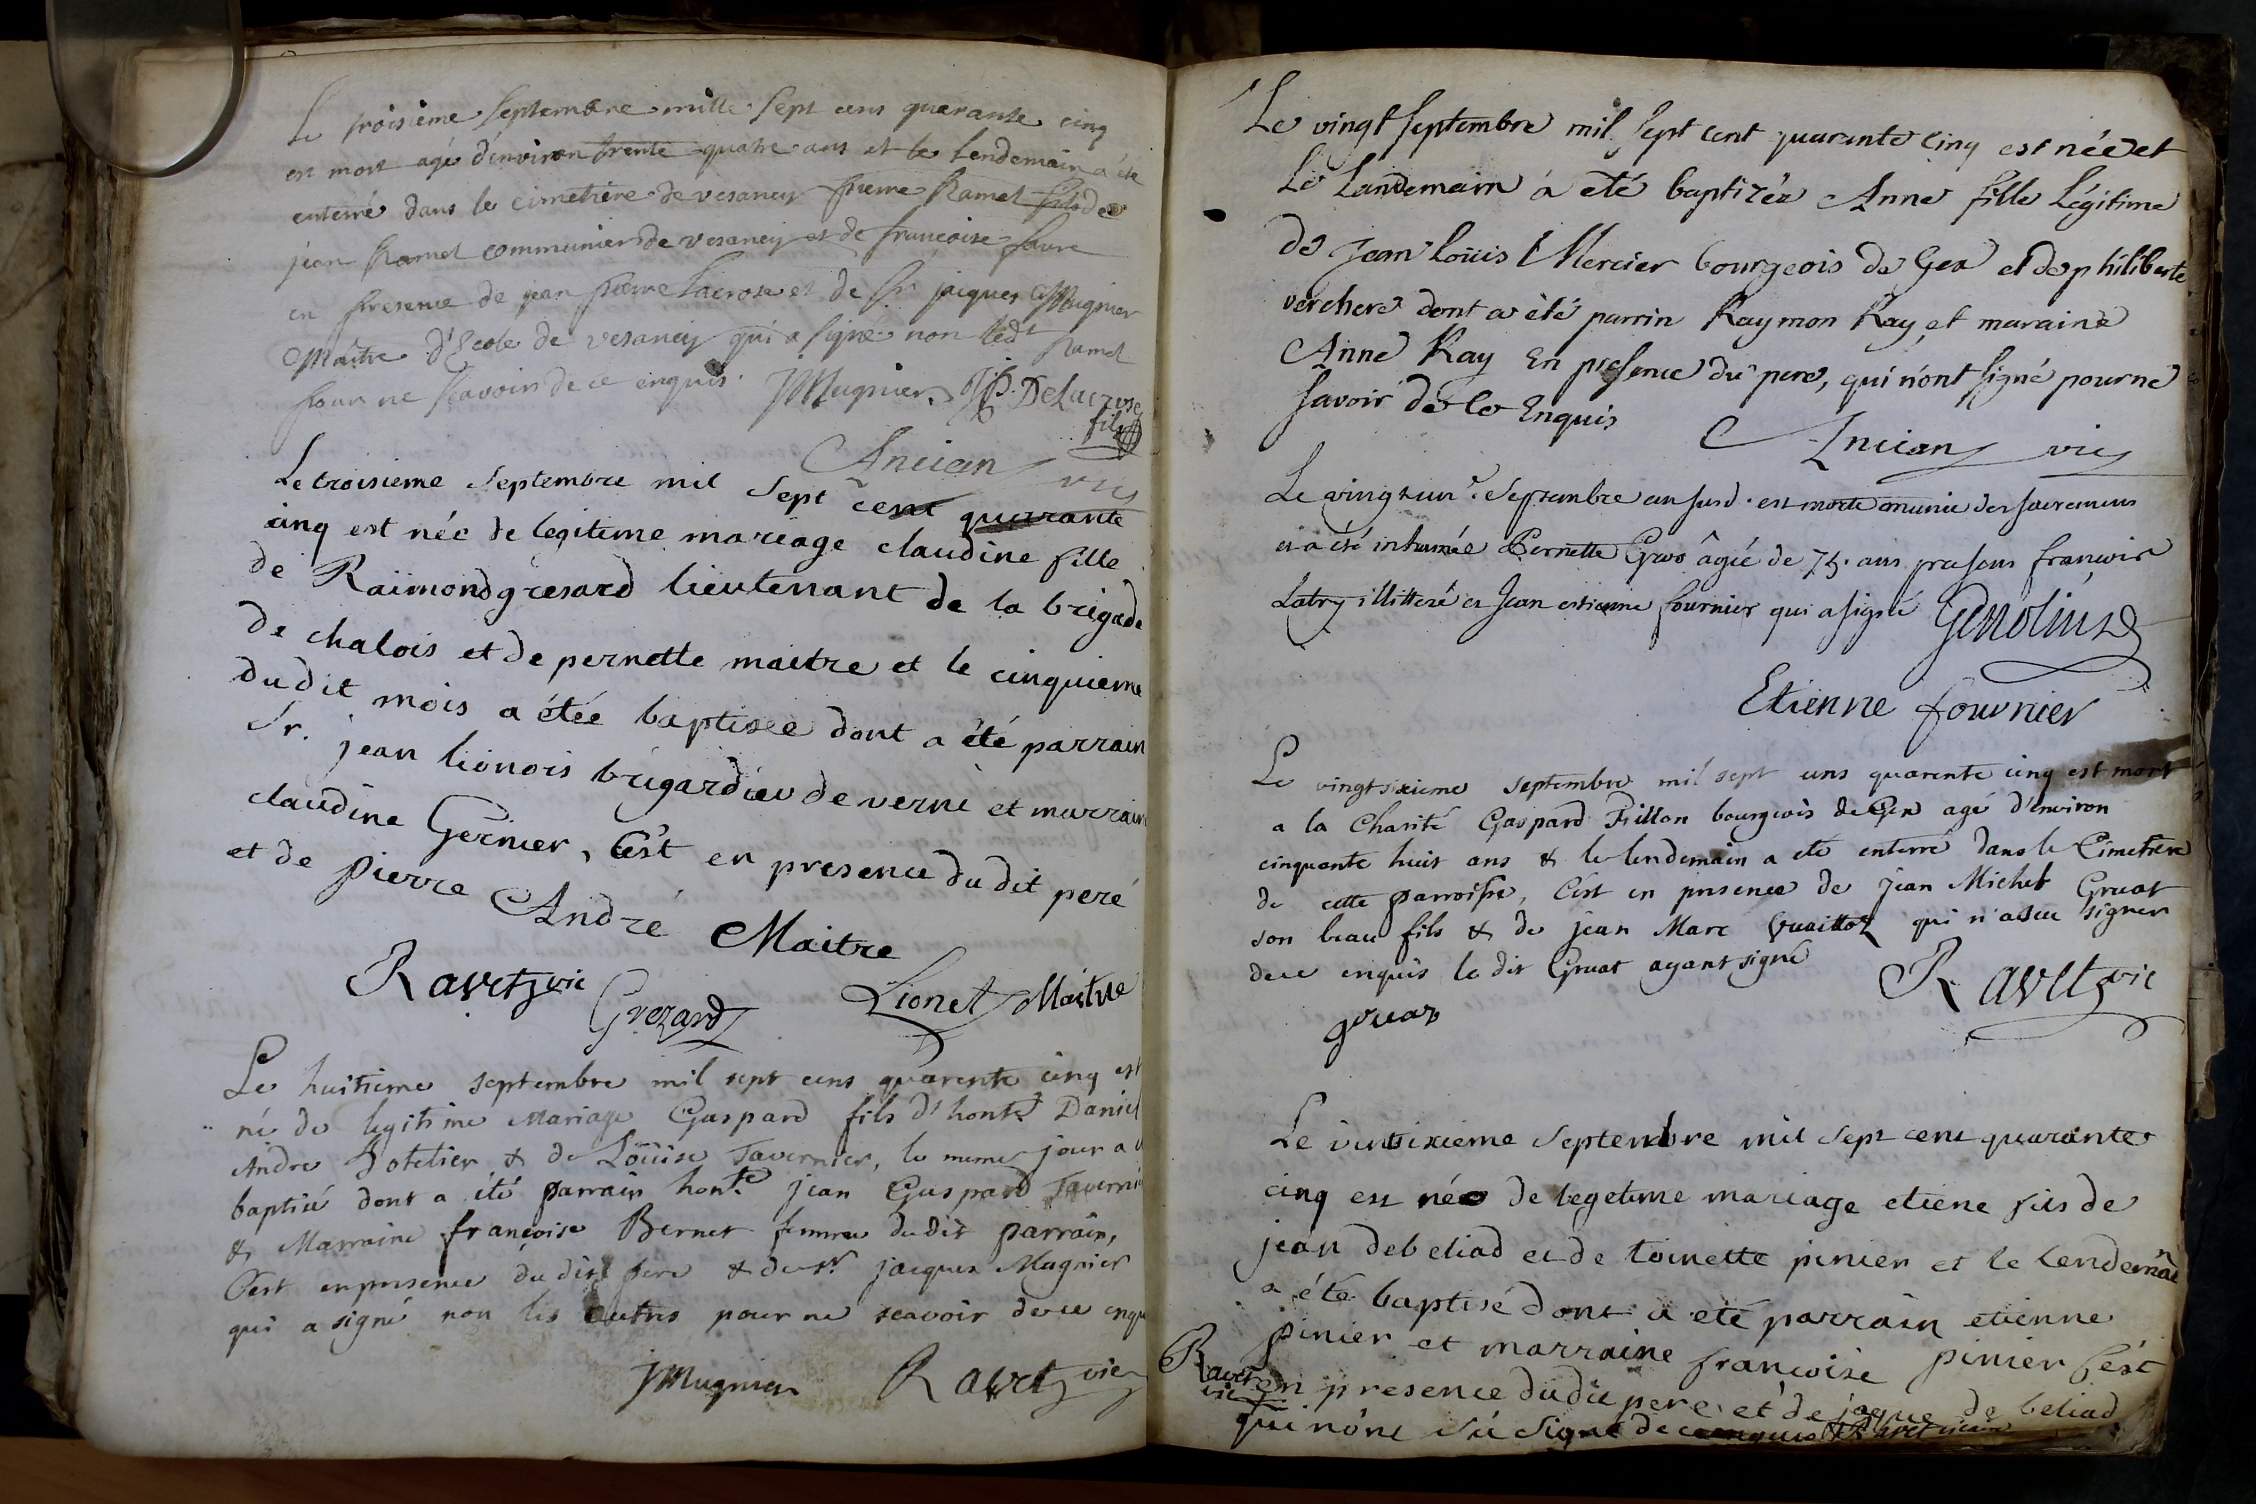 Le troisième Septembre mille Sept cens quarante cinq
est mort agé d'environ trente quatre ans et le lendemain a été
enterré dans le cimetière de vesancy pierre Ramel fils de
jean Ramel communier de vesancy et de françoise favre
en presence de jean pierre Lacrose et de Sr jacques Mugnier
Maître d'Ecole de vesancy qui a signé non ledt Ramel
pour ne sçavoir de ce enquis. JMugnier. JP. DeLacrose
fils
Ancian vic
Le troisieme Septembre mil Sept cent quarante
cinq est née de legitime mariage claudine fille
de Raimond gresard lieutenant de la brigade
de chalois et de pernette maitre et le cinquieme
du dit mois a étée baptisée dont a été parrain
Sr. jean lionois brigardier de verni et marraine
claudine Gernier, C'est en presence du dit peré
et de pierre André Maitre
Ravetz vic Grezard Lionet Maitre
Le huitieme septembre mil sept cens quarente cinq est
né de legitime Mariage Gaspard fils d'hontê Daniel
Andre hotelier & de Loüise Tavernier, le meme jour a
baptisé dont a été parrain honte. jean Gaspard Taverni
& Marraine françoise Bernet femme du dit parrain,
C'est en presence du dit pere & du sr jacques Mugnier
qui a signé non les autres pour ne scavoir de ce enqu
JMugnier Ravetz vic
Le vingt septembre mil sept cent quarante cinq est née et
Le Landemain a eté baptizéz Anne fille Légitime
de jean Loüis Mercier bourgeois de Gex et de philiberte
verchere dont a été parrin Raymon Ray, et maraine
Anne Ray En presence du pere, qui n'ont signé pour ne
savoir de ce Enquis
Ancian vic
Le vingt un e. Septembre an susd. est morte munie des sacremens
et a été inhumée Pernette Gros âgée de 75. ans presens francois
Latry illitteré et Jean estienne fournier qui a signé
Etienne fournier
Le vingtsixieme septembre mil sept cens quarente cinq est mort
a la Charité Gaspard Fillon bourgeois de Gex agé d'environ
cinquante huit ans & le lendemain a été enterré dans le Cimetiere
de cette parroisse, C'est en presence de jean Michel Gruat
son beau fils & de jean Marc qui n'a sceu signer
de ce enquis le dit Gruat ayant signé
Ravetz vic
gruaz
Le vintsixieme Septembre mil sept cent quarante
cinq est né de legetime mariage etiene fils de
jean debeliad et de toinette pinier et le lendemain
a été baptisé dont a eté parrain etienne
pinier et marraine francoise pinier C'est
en presence du dit pere et de jaque de beliad
Ravetz vic
qui n'ont sü signé de ce enquis